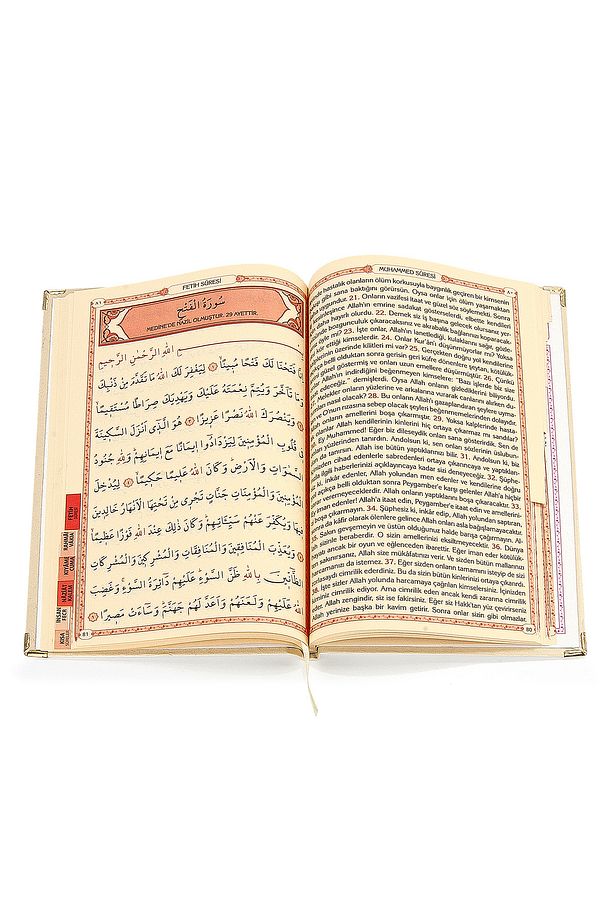 FETİH SÛRESİ
٨١
سُورَةُ الْفَتْحِ
MEDİNE'DE NAZİL OLMUŞTUR. 29 AYETTİR.
بِسْمِ اللهِ الرَّحْمٰنِ الرَّحِيمِ
فَتَحْنَا لَكَ فَتْحًا مُبِينًا ﴿١﴾ لِيَغْفِرَ لَكَ اللهُ مَا تَقَدَّمَ مِنْ ذَنْبِكَ
وَمَا تَأَخَّرَ وَيُتِمَّ نِعْمَتَهُ عَلَيْكَ وَيَهْدِيَكَ صِرَاطًا مُسْتَقِيمًا
وَيَنْصُرَكَ اللهُ نَصْرًا عَزِيزًا ﴿٣﴾ هُوَ الَّذِى اَنْزَلَ السَّكِينَةَ
فِى قُلُوبِ الْمُؤْمِنِينَ لِيَزْدَادُوا اِيمَانًا مَعَ اِيمَانِهِمْ وَلِلهِ جُنُودُ
السَّمٰوَاتِ وَالْاَرْضِ وَكَانَ اللهُ عَلِيمًا حَكِيمًا ﴿٤﴾ لِيُدْخِلَ
الْمُؤْمِنِينَ وَالْمُؤْمِنَاتِ جَنَّاتٍ تَجْرِى مِنْ تَحْتِهَا الْاَنْهَارُ خَالِدِينَ
فِيهَا وَيُكَفِّرَ عَنْهُمْ سَيِّئَاتِهِمْ وَكَانَ ذٰلِكَ عِنْدَ اللهِ فَوْزًا عَظِيمًا
وَيُعَذِّبَ الْمُنَافِقِينَ وَالْمُنَافِقَاتِ وَالْمُشْرِكِينَ وَالْمُشْرِكَاتِ
الظَّانِّينَ بِاللهِ ظَنَّ السَّوْءِ عَلَيْهِمْ دَائِرَةُ السَّوْءِ وَغَضِبَ
اللهُ عَلَيْهِمْ وَلَعَنَهُمْ وَاَعَدَّ لَهُمْ جَهَنَّمَ وَسَاءَتْ مَصِيرًا ﴿٦﴾
81
FETİH
RAHMÂN
VAKIA
KIYÂME
CUMA
NÂZİÂT
İNSAN
FECR
KISA
SURELER
MUHAMMED SÛRESİ
٨٠
hastalık olanların ölüm korkusuyla baygınlık geçiren bir kimsenin
gibi sana baktığını görürsün. Oysa onlar için ölüm yaşamaktan
uygundur. 21. Onların vazifesi itaat ve güzel söz söylemekti. Sonra
Allah'ın emrine sadakat gösterselerdi, elbette kendileri
daha hayırlı olurdu. 22. Demek siz iş başına gelecek olursanız yer-
bozgunculuk çıkaracaksınız ve akrabalık bağlarınızı koparacak-
öyle mi? 23. İşte onlar, Allah'ın lanetlediği, kulaklarını sağır, gözle-
ettiği kimselerdir. 24. Onlar Kur'ân'ı düşünmüyorlar mı? Yoksa
üzerinde kilitleri mi var? 25. Gerçekten doğru yol kendilerine
belli olduktan sonra gerisin geri küfre dönenlere, şeytan kötülüğü
güzel göstermiş ve onları uzun emellere düşürmüştür. 26. Çünkü
Allah'ın indirdiğini beğenmeyen kimselere: "Bazı işlerde biz size
edeceğiz." demişlerdi. Oysa Allah onların gizlediklerini biliyor.
Melekler onların yüzlerine ve arkalarına vurarak canlarını alırken du-
nasıl olacak? 28. Bu onların Allah'ı gazaplandıran şeylere uyma-
O'nun rızasına sebep olacak şeyleri beğenmemelerinden dolayıdır.
onların amellerini boşa çıkarmıştır. 29. Yoksa kalplerinde hasta-
olanlar Allah kendilerinin kinlerini hiç ortaya çıkarmaz mı sandılar?
Ey Muhammed! Eğer biz dileseydik onları sana gösterirdik. Sen de
yüzlerinden tanırdın. Andolsun ki, sen onları sözlerinin üslubun-
da tanırsın. Allah ise bütün yaptıklarınızı bilir. 31. Andolsun ki, biz
cihad edenlerle sabredenleri ortaya çıkarıncaya ve yaptıkları-
ilgili haberlerinizi açıklayıncaya kadar sizi deneyeceğiz. 32. Şüphe-
ki, inkâr edenler, Allah yolundan men edenler ve kendilerine doğru
açıkça belli olduktan sonra Peygamber'e karşı gelenler Allah'a hiçbir
veremeyeceklerdir. Allah onların yaptıklarını boşa çıkaracaktır. 33.
iman edenler! Allah'a itaat edin, Peygamber'e itaat edin ve amellerini-
boşa çıkarmayın. 34. Şüphesiz ki, inkâr edip, Allah yolundan saptıran,
da kâfir olarak ölenlere gelince Allah onları asla bağışlamayacaktır.
Sakın gevşemeyin ve üstün olduğunuz halde barışa çağırmayın. Al-
sizinle beraberdir. O sizin amellerinizi eksiltmeyecektir. 36. Dünya
ancak bir oyun ve eğlenceden ibarettir. Eğer iman eder kötülük-
sakınırsanız, Allah size mükâfatınızı verir. Ve sizden bütün mallarınızı
harcamanızı da istemez. 37. Eğer sizden onların tamamını isteyip de sizi
zorlasaydı cimrilik ederdiniz. Bu da sizin bütün kinlerinizi ortaya çıkarırdı.
38. İşte sizler Allah yolunda harcamaya çağrılan kimselersiniz. İçinizden
cimrilik ediyor. Ama cimrilik eden ancak kendi zararına cimrilik
eder. Allah zengindir, siz ise fakirsiniz. Eğer siz Hakk'tan yüz çevirirseniz
Allah yerinize başka bir kavim getirir. Sonra onlar sizin gibi olmazlar.
80